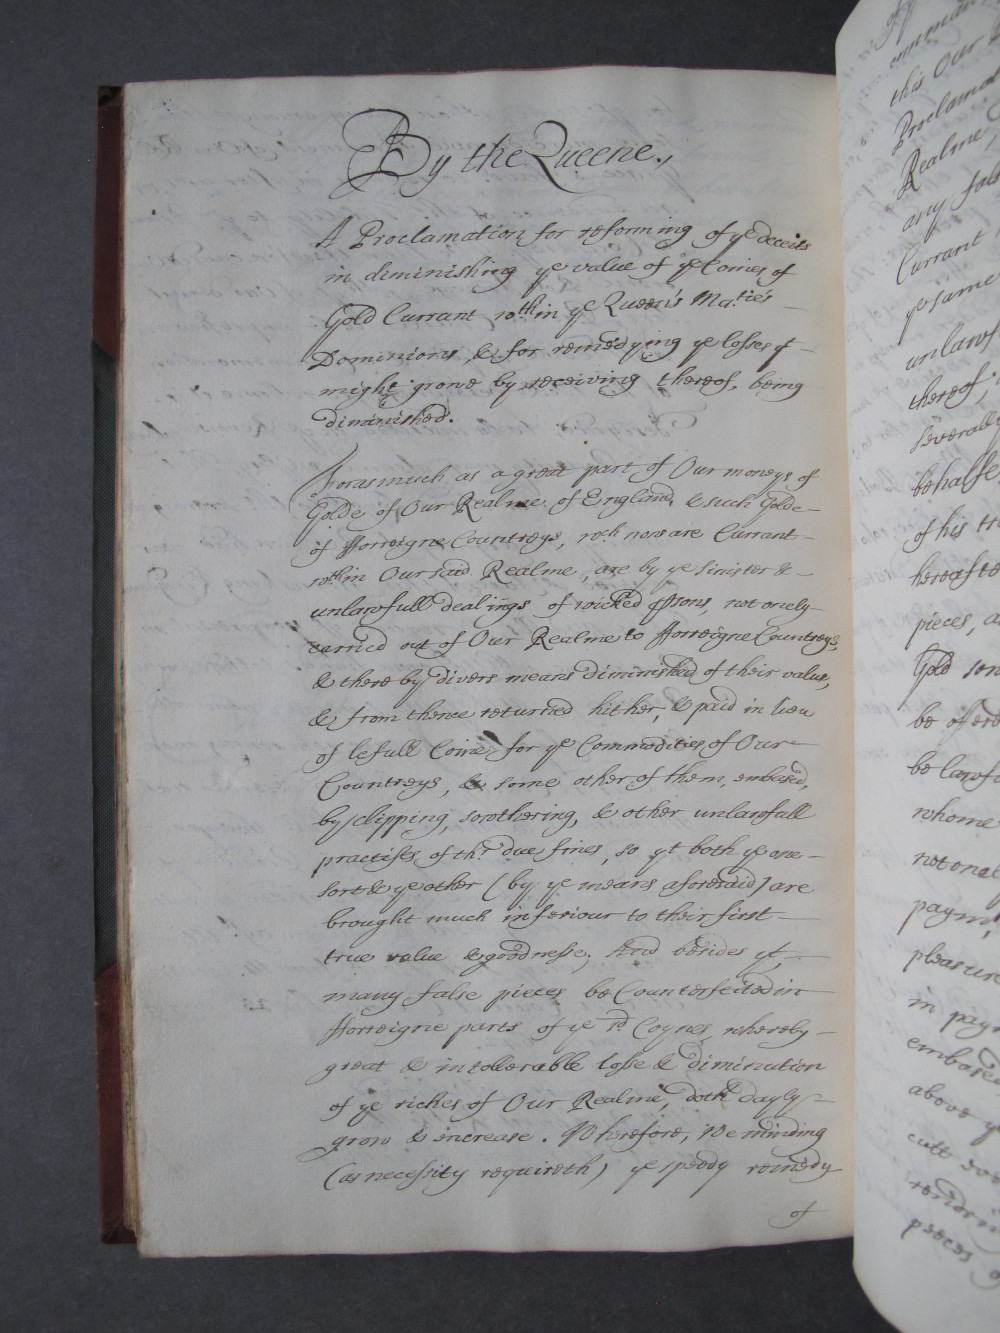 By the Queene.,
A Proclamation for reforming of ye deceits
in diminishing ye value of ye Coines of
Gold Currant wthin ye Queen's Maties
Dominions, & for remedying ye losses yt
might grone by receiving thereof, being
diminished.
Forasmuch as a great part of Our moneys of
Golde of Our Realme of England, & such Golde
of fforreigne Countreys, wch now are Currant
wthin Our said Realme, are by ye sinister &
unlawfull dealings of wicked psons, not onely
carried out of Our Realme to fforreigne Countreys,
& there by divers means diminished of their value,
& from thence returned hither, & paid in lieu
of lefull Coine, for ye Commodities of Our
Countreys, & some other of them, embased,
by clipping, sowthering, & other unlawfull
practises, of thr due fines, so yt both ye one
sort & ye other (by ye means aforesaid) are
brought much inferiour to their first
true value & goodnesse; And besides yt,
many false pieces be Counterfeited in
fforreigne parts of ye sd. Coynes, whereby
great & intollerable losse & diminution
of ye riches of Our Realme, doth dayly
grow & encrease. Wherefore, We minding
(as necessity requireth) ye speedy remedy
of
this Our
Proclamat
Realme,
any fals
Currant
ye same
unlawf
thereof;
severally
behalfe
of his tr
hereafte
pieces, a
Gold
be
be lawfu
whome
not onel
paymt,
pleasure
in paym
embased
above y
cutt
pieces o